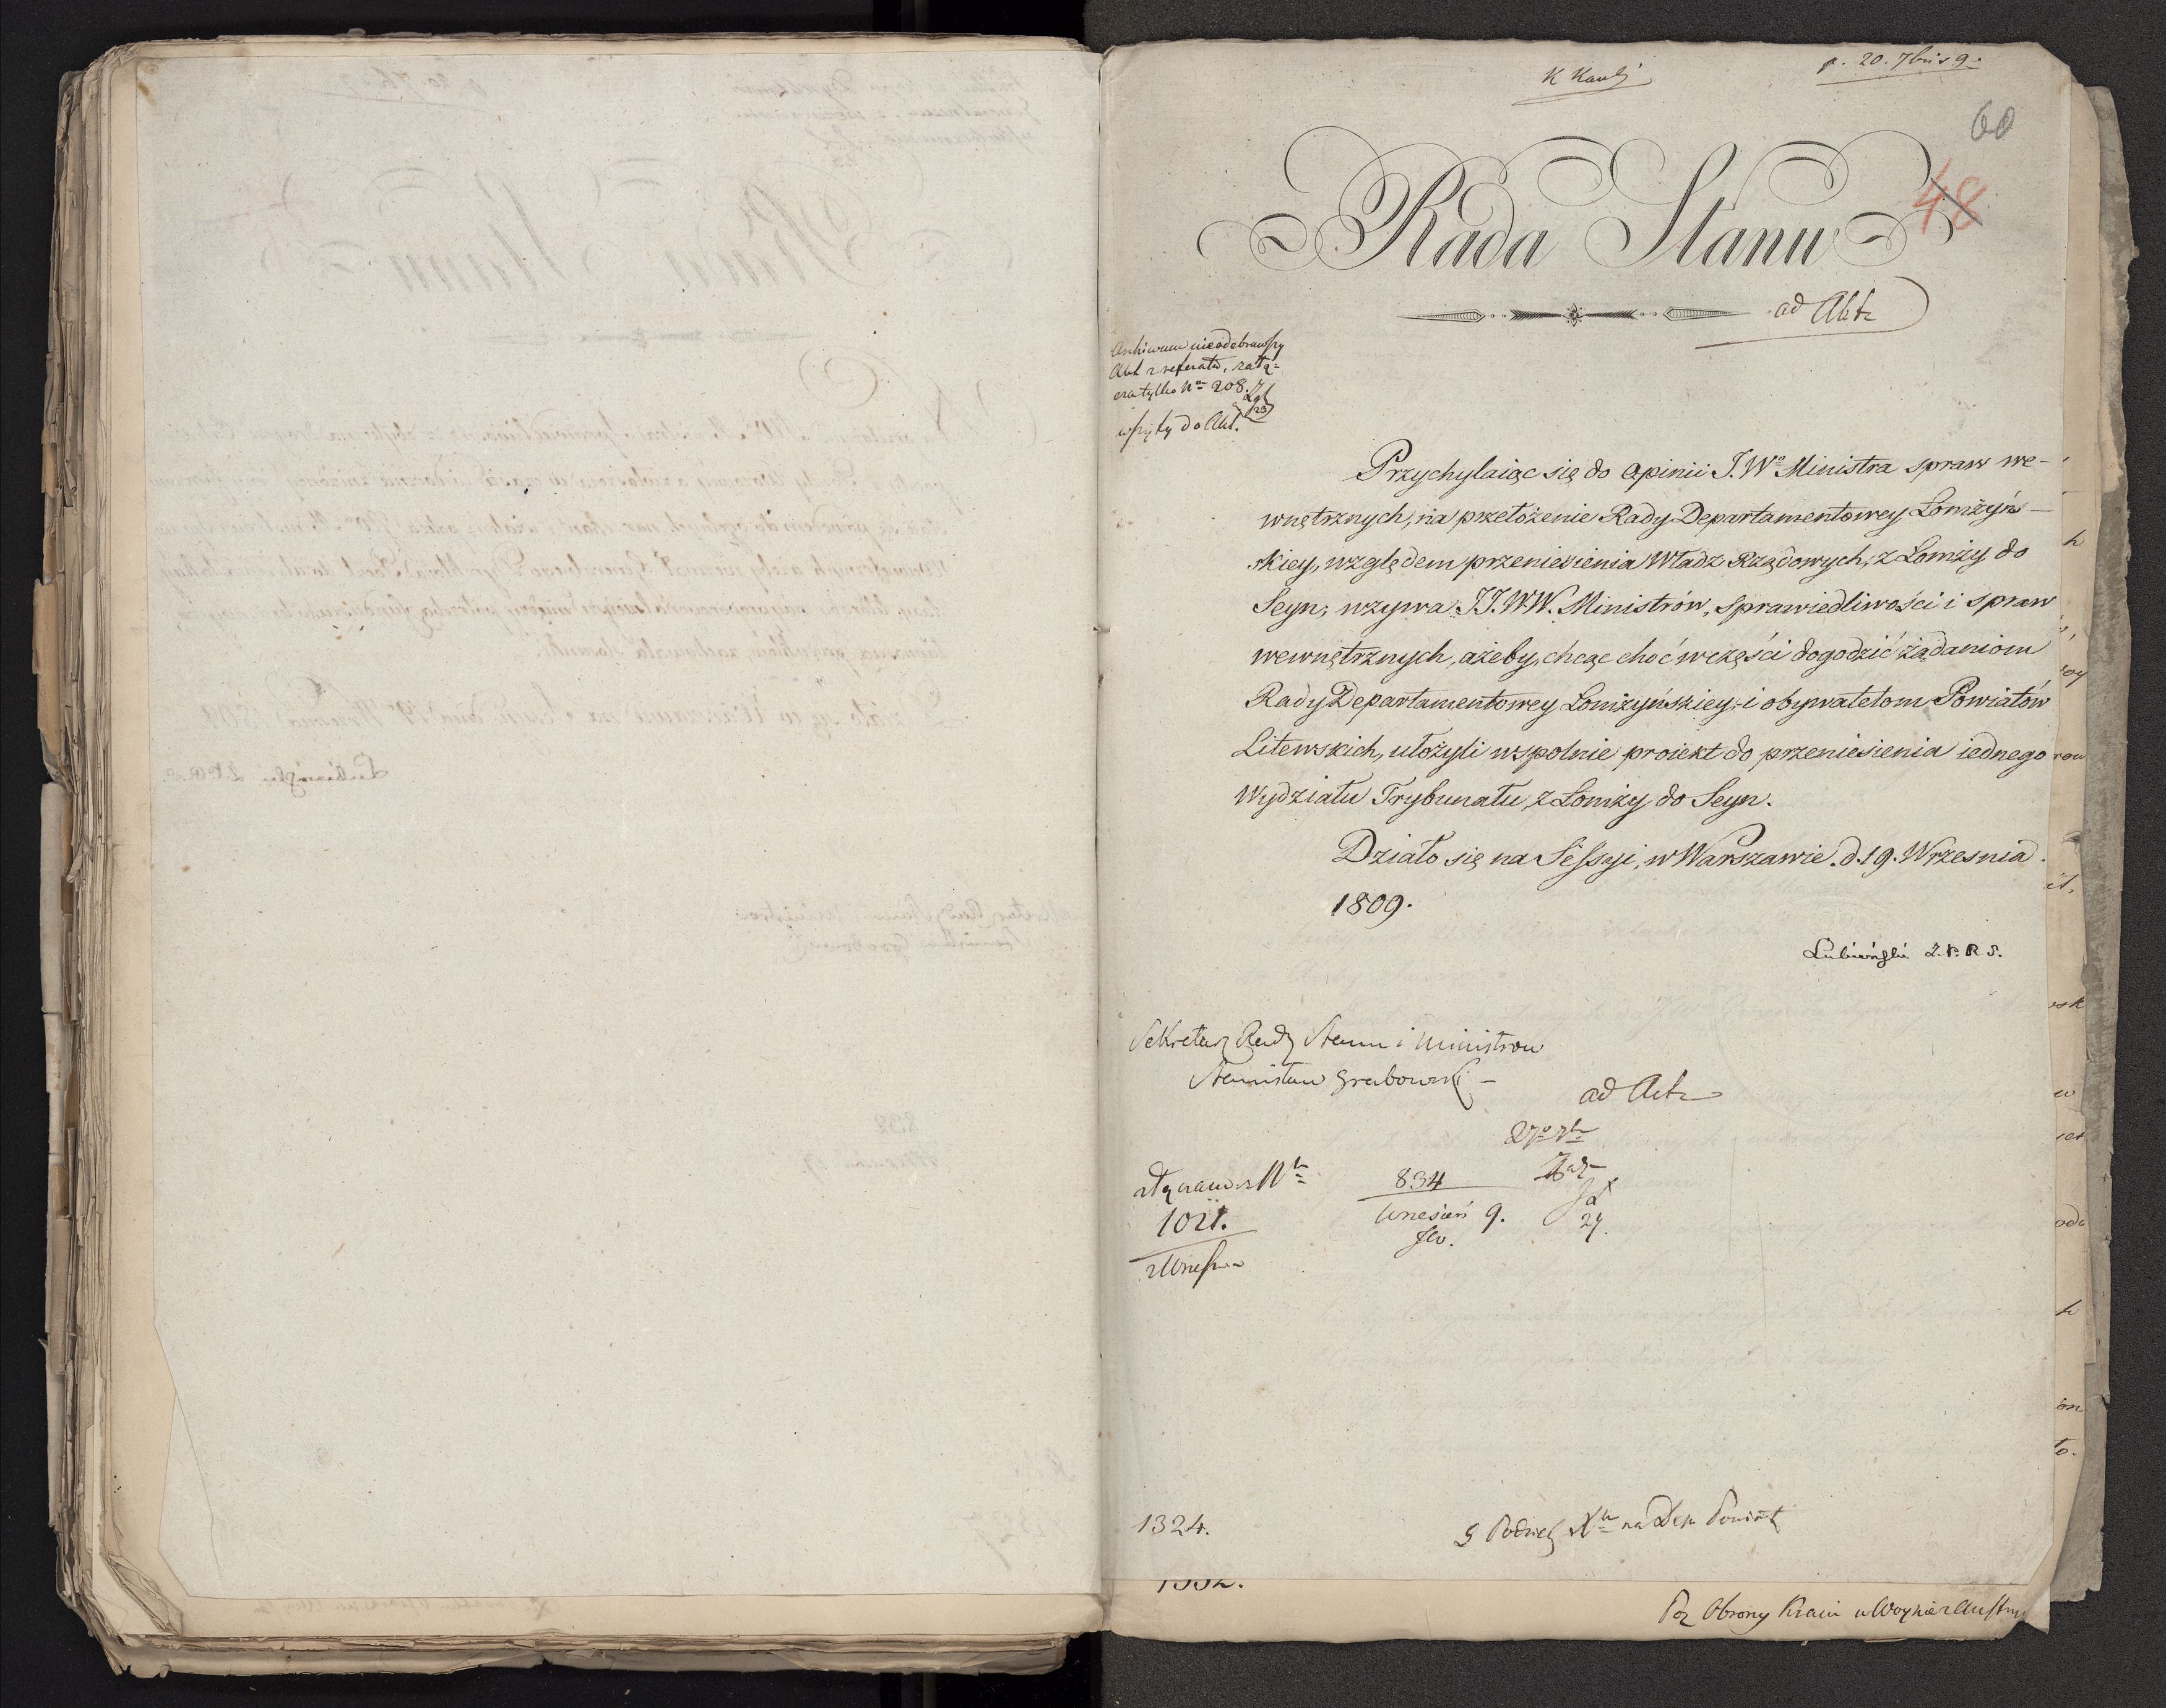 p. 20. 7bris 9.
60
48
Rada Stanu
ad Akta
Archiwum nieodebrawszy
Akt z referatu, załą=
cza tylko Nr 208.
wszyty do Akt.
Przychylaiąc się do Opinii J.Wo Ministra spraw we-
wnętrznych, na przełożenie Rady Departamentowey Łomżyń-
skiey, względem przeniesienia Władz Rządowych, z Łomży do
Seyn, wzywa JJ.WW. Ministrów, Sprawiedliwości i spraw
wewnętrznych, ażeby, chcąc choć wczęści dogodzić żądaniom
Rady Departamentowey Łomżyńskiey, i obywatelom Powiatów
Litewskich, ułożyli wspolnie proiekt do przeniesienia iednego
Wydziału Trybunału, z Łomży do Seyn.
Działo się na Sessyi, w Warszawie. d. 19. Wrzesnia
1809.
Lubieński Z.P.R.S.
Sekretarz Rady Stanu i Ministrow
Stanisław Grabowski
ad Akta
27o 7br
834
Wrzesień 9.
27.
1021.
1324.
na Dep Powiat
Obrony Kraiu w Woynie z Austry